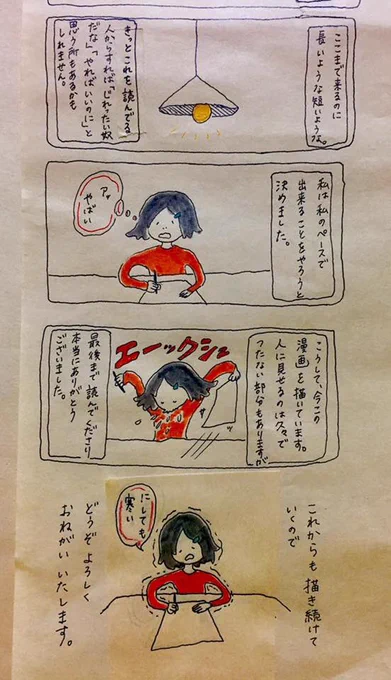 ここまで来るのに
長いような短いような。
きっとこれを読んでる
人からすれば「じれったい奴
だな」「やればいいのに」と
思う所もあるかも
しれません。
私は私のペースで
出来ることをやろうと
決めました。
アッ
やばい
こうして、今この
漫画を描いています。
人に見せるのは久々で
つたない部分もありますが
エーックシュ
サッ
最後まで読んでくださり
本当にありがとう
ございました。
これからも描き続けて
いくので
にしても
寒い
どうぞよろしく
おねがいいたします。